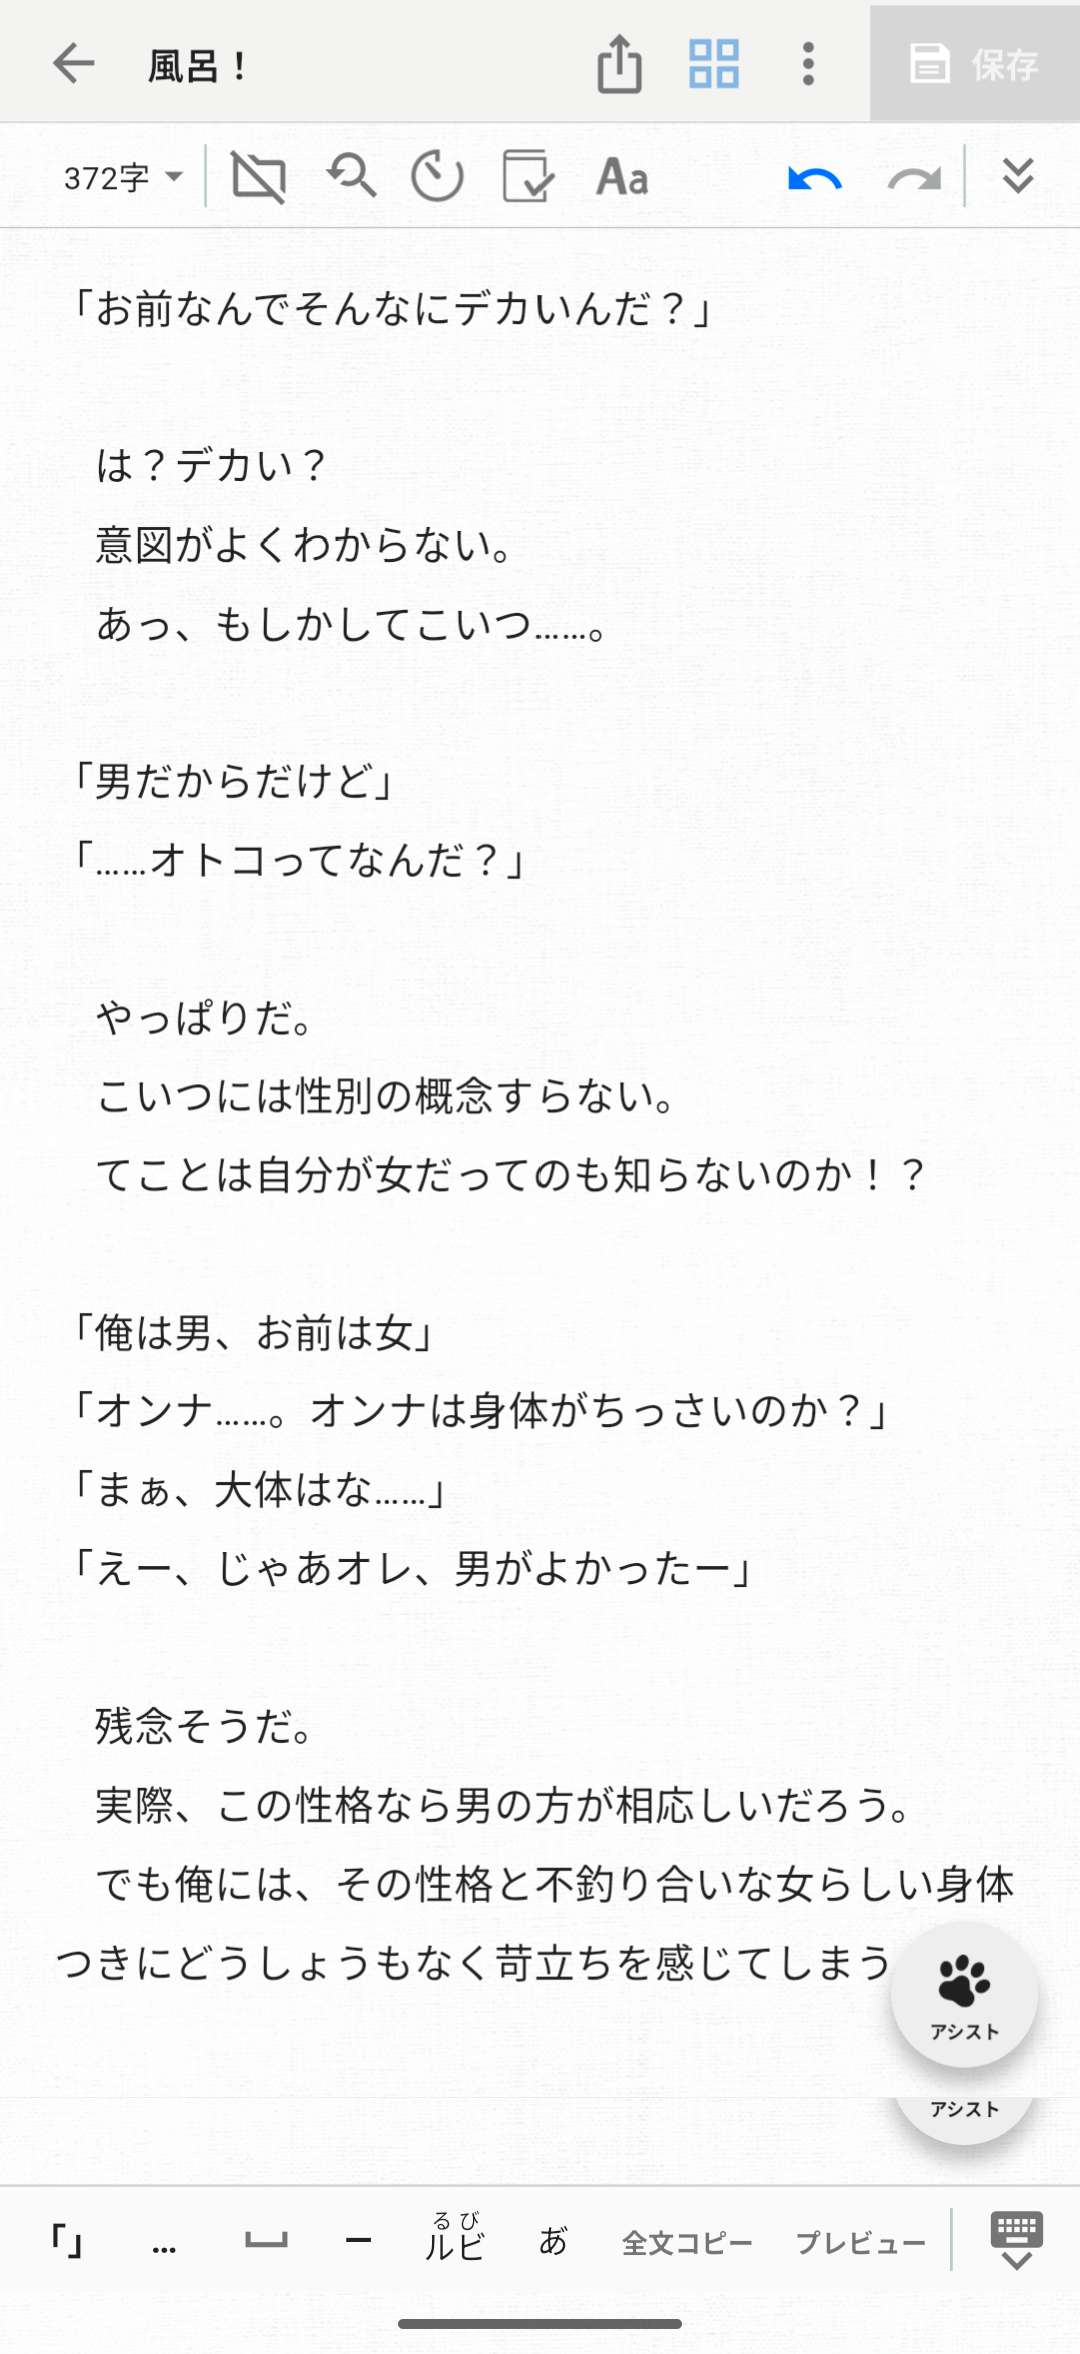 風呂！
保存
372字
Aa
「お前なんでそんなにデカいんだ？」
は？デカい？
意図がよくわからない。
あっ、もしかしてこいつ……。
「男だからだけど」
「……オトコってなんだ？」
やっぱりだ。
こいつには性別の概念すらない。
てことは自分が女だってのも知らないのか！？
「俺は男、お前は女」
「オンナ……。オンナは身体がちっさいのか？」
「まぁ、大体はな……」
「えー、じゃあオレ、男がよかったー」
残念そうだ。
実際、この性格なら男の方が相応しいだろう。
でも俺には、その性格と不釣り合いな女らしい身体
つきにどうしょうもなく苛立ちを感じてしまう
アシスト
アシスト
「」 … ー ルビ るび あ゙ 全文コピー プレビュー